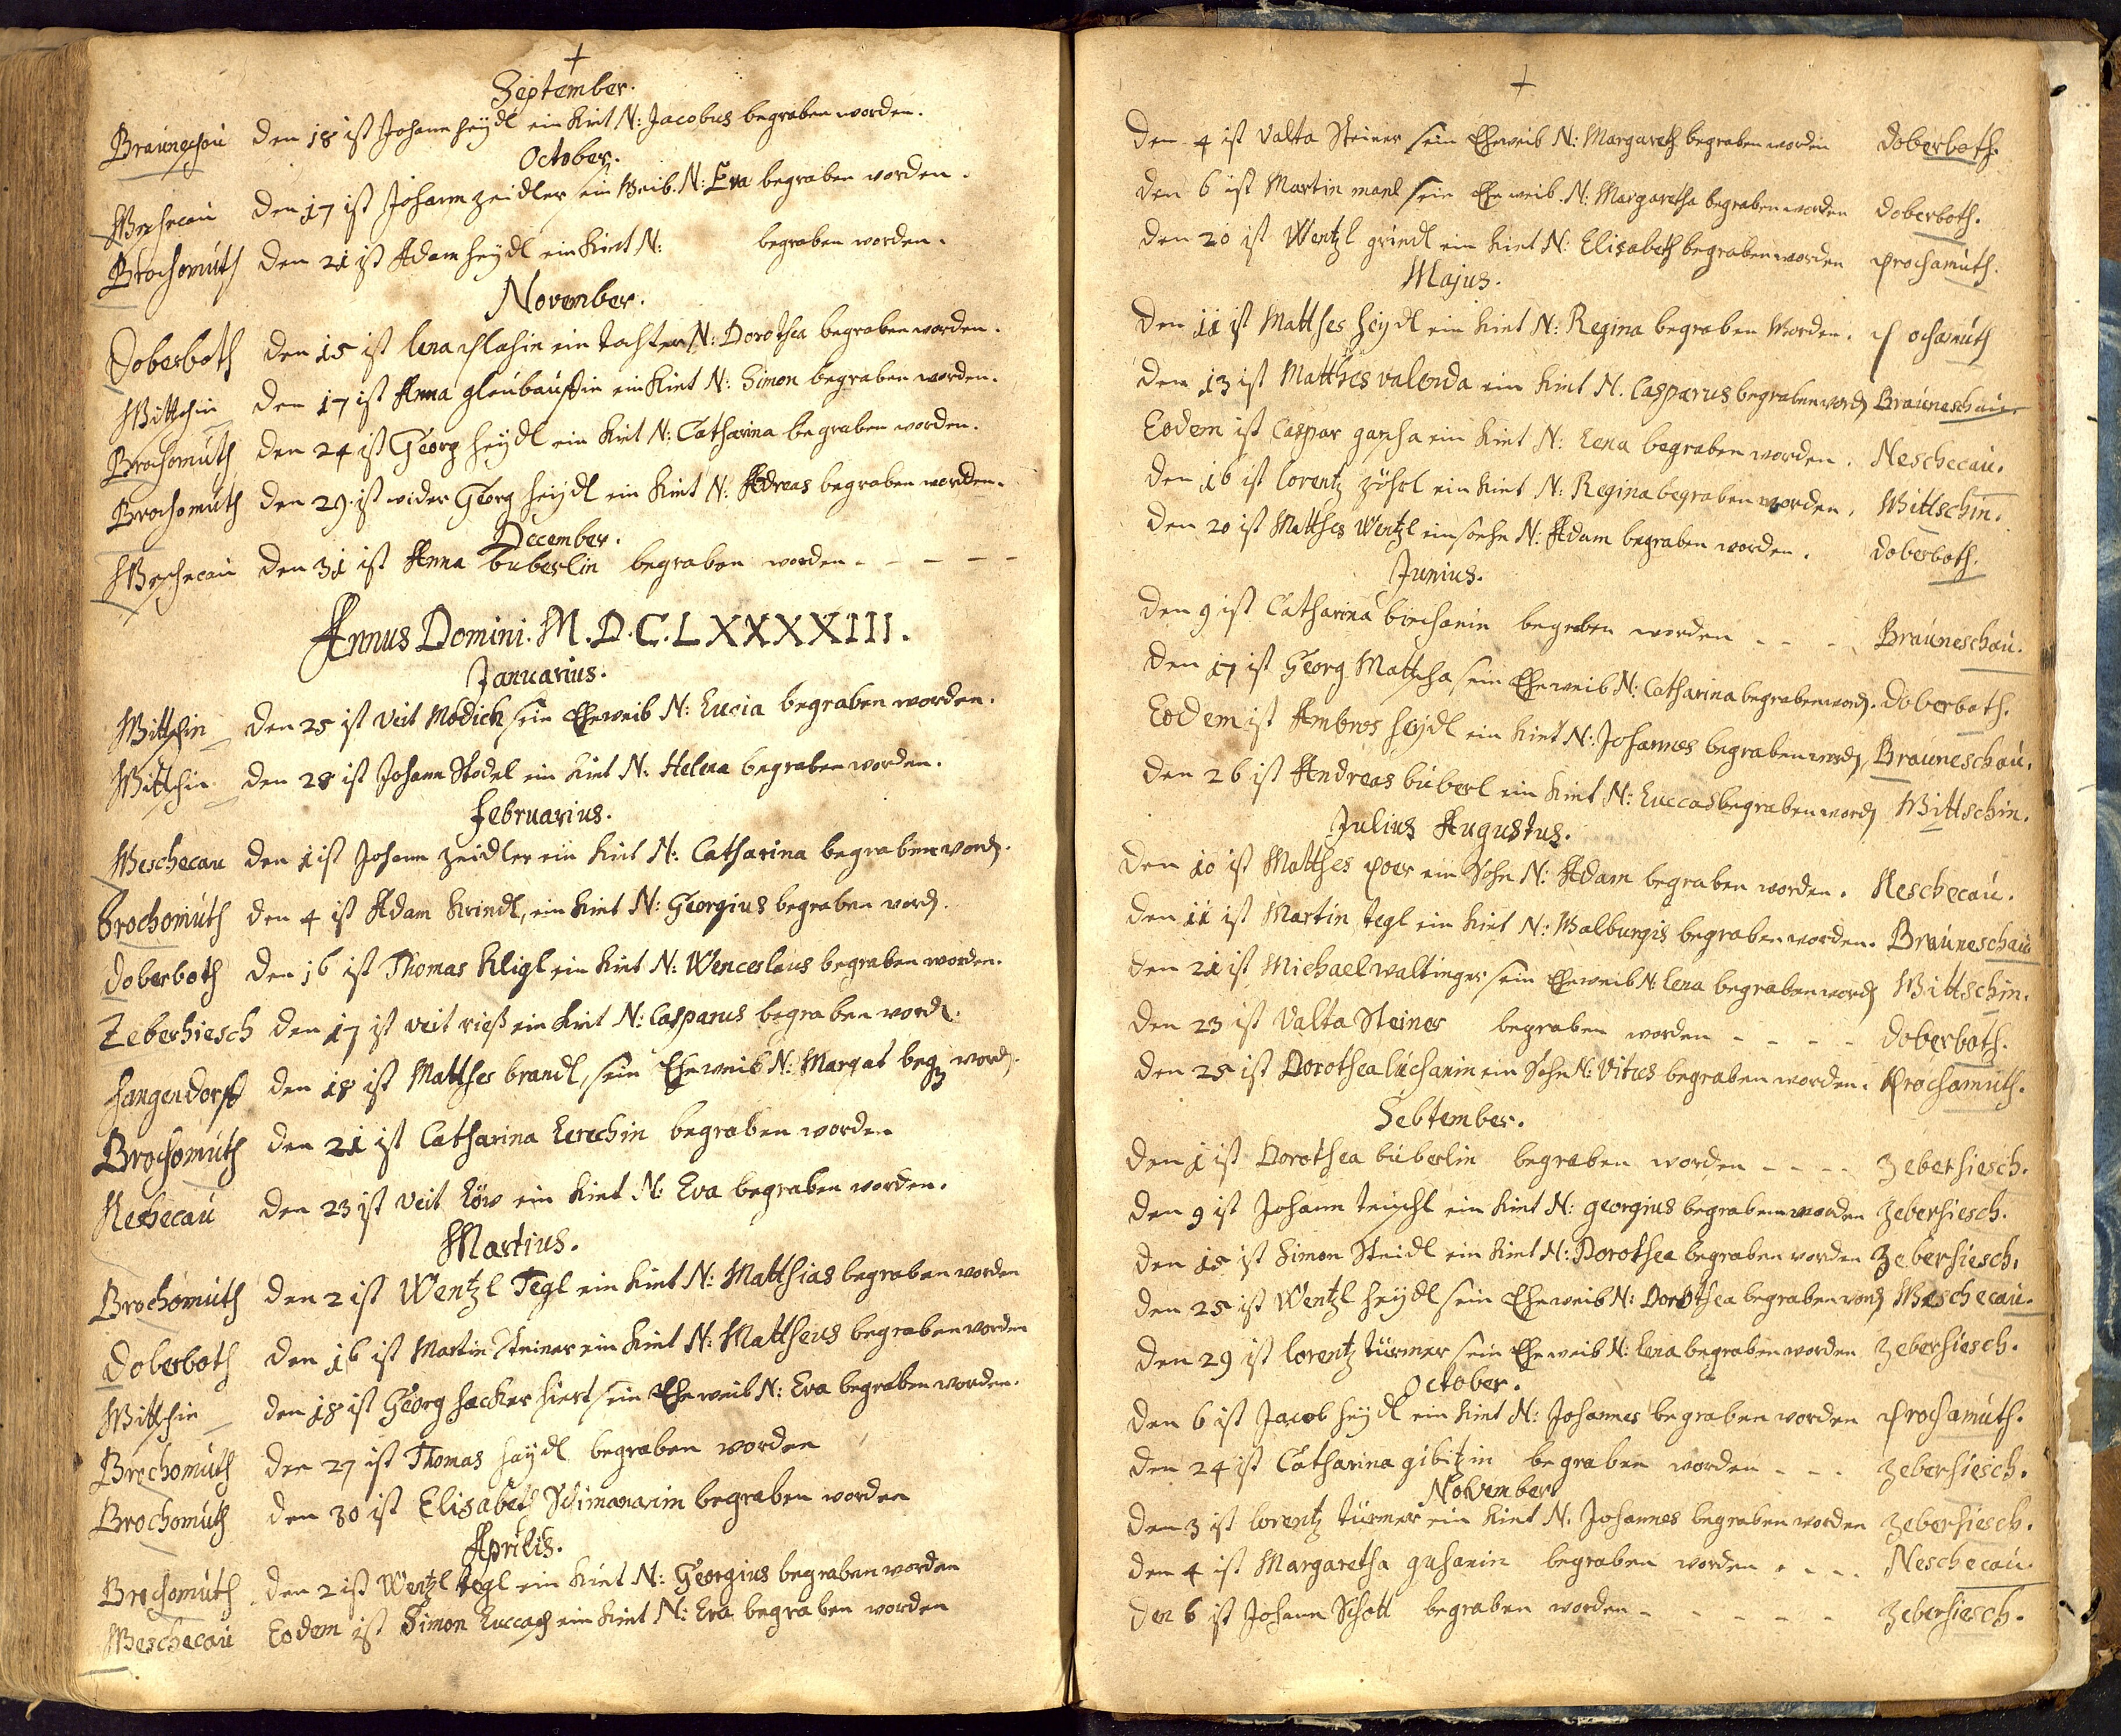 September.
Brauneschau den 18 ist Johann heÿdl ein Kint N: Jacobus begraben worden.
October.
Weschecau den 17 ist Johann zeidler sein Weib. N: Eva begraben worden.
Brochomuth den 21 ist Adam heÿdl ein Kint N: begraben worden.
November.
Doberboth den 15 ist lena ein tochter N: Dorothea begraben worden.
Wittschin den 17 ist Anna ein Kint N: Simon begraben worden.
Brochomuth den 24 ist Georg heÿdl ein Kint N: Catharina begraben worden.
Brochomuth den 29. ist wider Georg heÿdl ein Kint N: Adreas begraben worden.
December.
Weschecau den 31 ist Anna buberlin begraben worden - - - -
Annus Domini. M.D.C.LXXXXIII.
Januarius.
Wittschin den 25 ist Veit Modick sein Eheweib N: Lucia begraben worden.
Wittschin den 28 ist Johann Stodel ein Kint N: Helena begraben worden.
Februarius.
Weschecau den 1 ist Johann zeidler ein Kint N: Catharina begraben word.
Brochomuth den 4 ist Adam Krindl, ein Kint N: Georgius begraben word.
Doberboth den 16 ist Thomas Kligl ein Kint N: Wenceslaus begraben worden.
Zeberhiesch den 17 ist veit rieß ein Kint N: Casparus begraben word.
Hangendorff den 18 ist Matthes brandl, sein Eheweib N: Margat beg word.
Brochomuth den 21 ist Catharina Lerechin begraben worden
Neschecau den 23 ist Veit Löw ein Kint N: Eva begraben worden.
Martius.
Brochomuth den 2 ist Wentzl Tegl ein Kint N: Matthias begraben worden
Doberboth den 16 ist Martin Steiner ein Kint N: Mattheus begraben worden
Wittschin den 18 ist Georg hacker hiert sein Eheweib N: Eva begraben worden.
Brochomuth den 27 ist Thomas haÿdl begraben worden
Brochomuth den 30 ist Elisabeth Schimanarin begraben worden
Aprilis.
Brochomuth den 2 ist Wentzl tegl ein Kint N: Georgius begraben worden
Weschecau Eodem ist Simon Luccasch ein Kint N: Eva begraben worden
den 4 ist Valta Steiner sein Eheweib N: Margareth begraben worden Doberboth.
den 6 ist Martin manl sein Eheweib. N: Margaretha begraben worden Doberboth.
den 20 ist Wentzl griedl ein Kint N: Elisabeth begraben worden Prochamuth.
Majus.
den 11 ist Matthes heÿdl ein Kint N: Regina begraben Worden. P ochamuth
den 13 ist Matthes valenda ein Kint N. Casparus begraben word Brauneschau
Eodem ist Caspar gascha ein Kint N: Lena begraben worden. Neschecau.
den 16 ist lorentz zöhrl ein Kint N: Regina begraben worden. Wittschin.
den 20 ist Matthes Wentzl ein soehn N: Adam begraben worden. Doberboth.
Junius.
den 9 ist Catharina birchanin begraben worden - - - - Brauneschau.
den 17 ist Georg Mattscha sein Eheweib N: Catharina begraben word. Doberboth.
Eodem ist Ambros heÿdl ein Kint N: Johannes begraben word, Brauneschau.
den 26 ist Andreas buberl ein Kint N: Luccas begraben word Wittschin.
Julius Augustus.
den 10 ist Matthes poer ein Sohn N: Adam begraben worden. Neschecau.
den 11 ist Martin tegl ein Kint N: Walburgis begraben worden. Brauneschau
den 21 ist Michael waltinger sein Eheweib N: lena begraben word Wittschin.
den 23 ist Valta Steiner begraben worden - - - - Doberboth.
den 25 ist Dorothea luchanin ein Sohn N: Vitus begraben worden. Prochamuth.
Sebtember.
den 1 ist Dorothea buberlin begraben worden - - - - Zeberhiesch.
den 9 ist Johann teuschl ein Kint N: georgius begraben worden Zeberhiesch.
den 15 ist Simon Steidl ein Kint N: Dorothea begraben worden Zeberhiesch.
den 25 ist Wentzl heÿdl sein Eheweib N: Dorothea begraben word Weschecau.
den 29 ist lorentz türmer sein Eheweib N: lena begraben worden Zeberhiesch.
October.
den 6 ist Jacob heÿdl ein Kint N: Johannes begraben worden Prochamuth.
den 24 ist Catharina gibitzin begraben worden - - - Zeberhiesch.
November
den 3 ist lorentz türmer ein Kint N. Johannes begraben worden Zeberhiesch.
den 4 ist Margaretha guhanin begraben worden - - - - Neschecau.
den 6 ist Johann Schott begraben worden - - - - - Zeberhiesch.